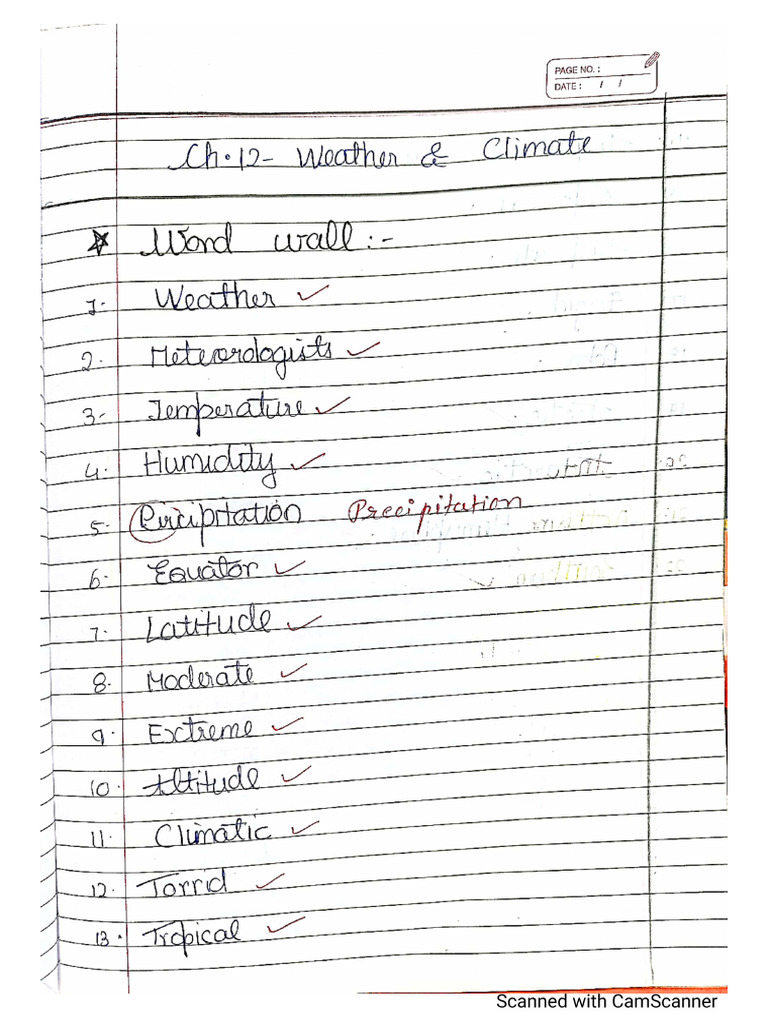 PAGE NO.:
DATE: / /
Ch.12- Weather & Climate
Word wall:-
1. Weather ✓
2. Meteorologists ✓
3. Temperature ✓
4. Humidity ✓
5. Pricipitation Precipitation
6. Equator ✓
7. Latitude ✓
8. Moderate ✓
9. Extreme ✓
10. Altitude ✓
11. Climatic ✓
12. Torrid ✓
13. Tropical ✓
Scanned with CamScanner